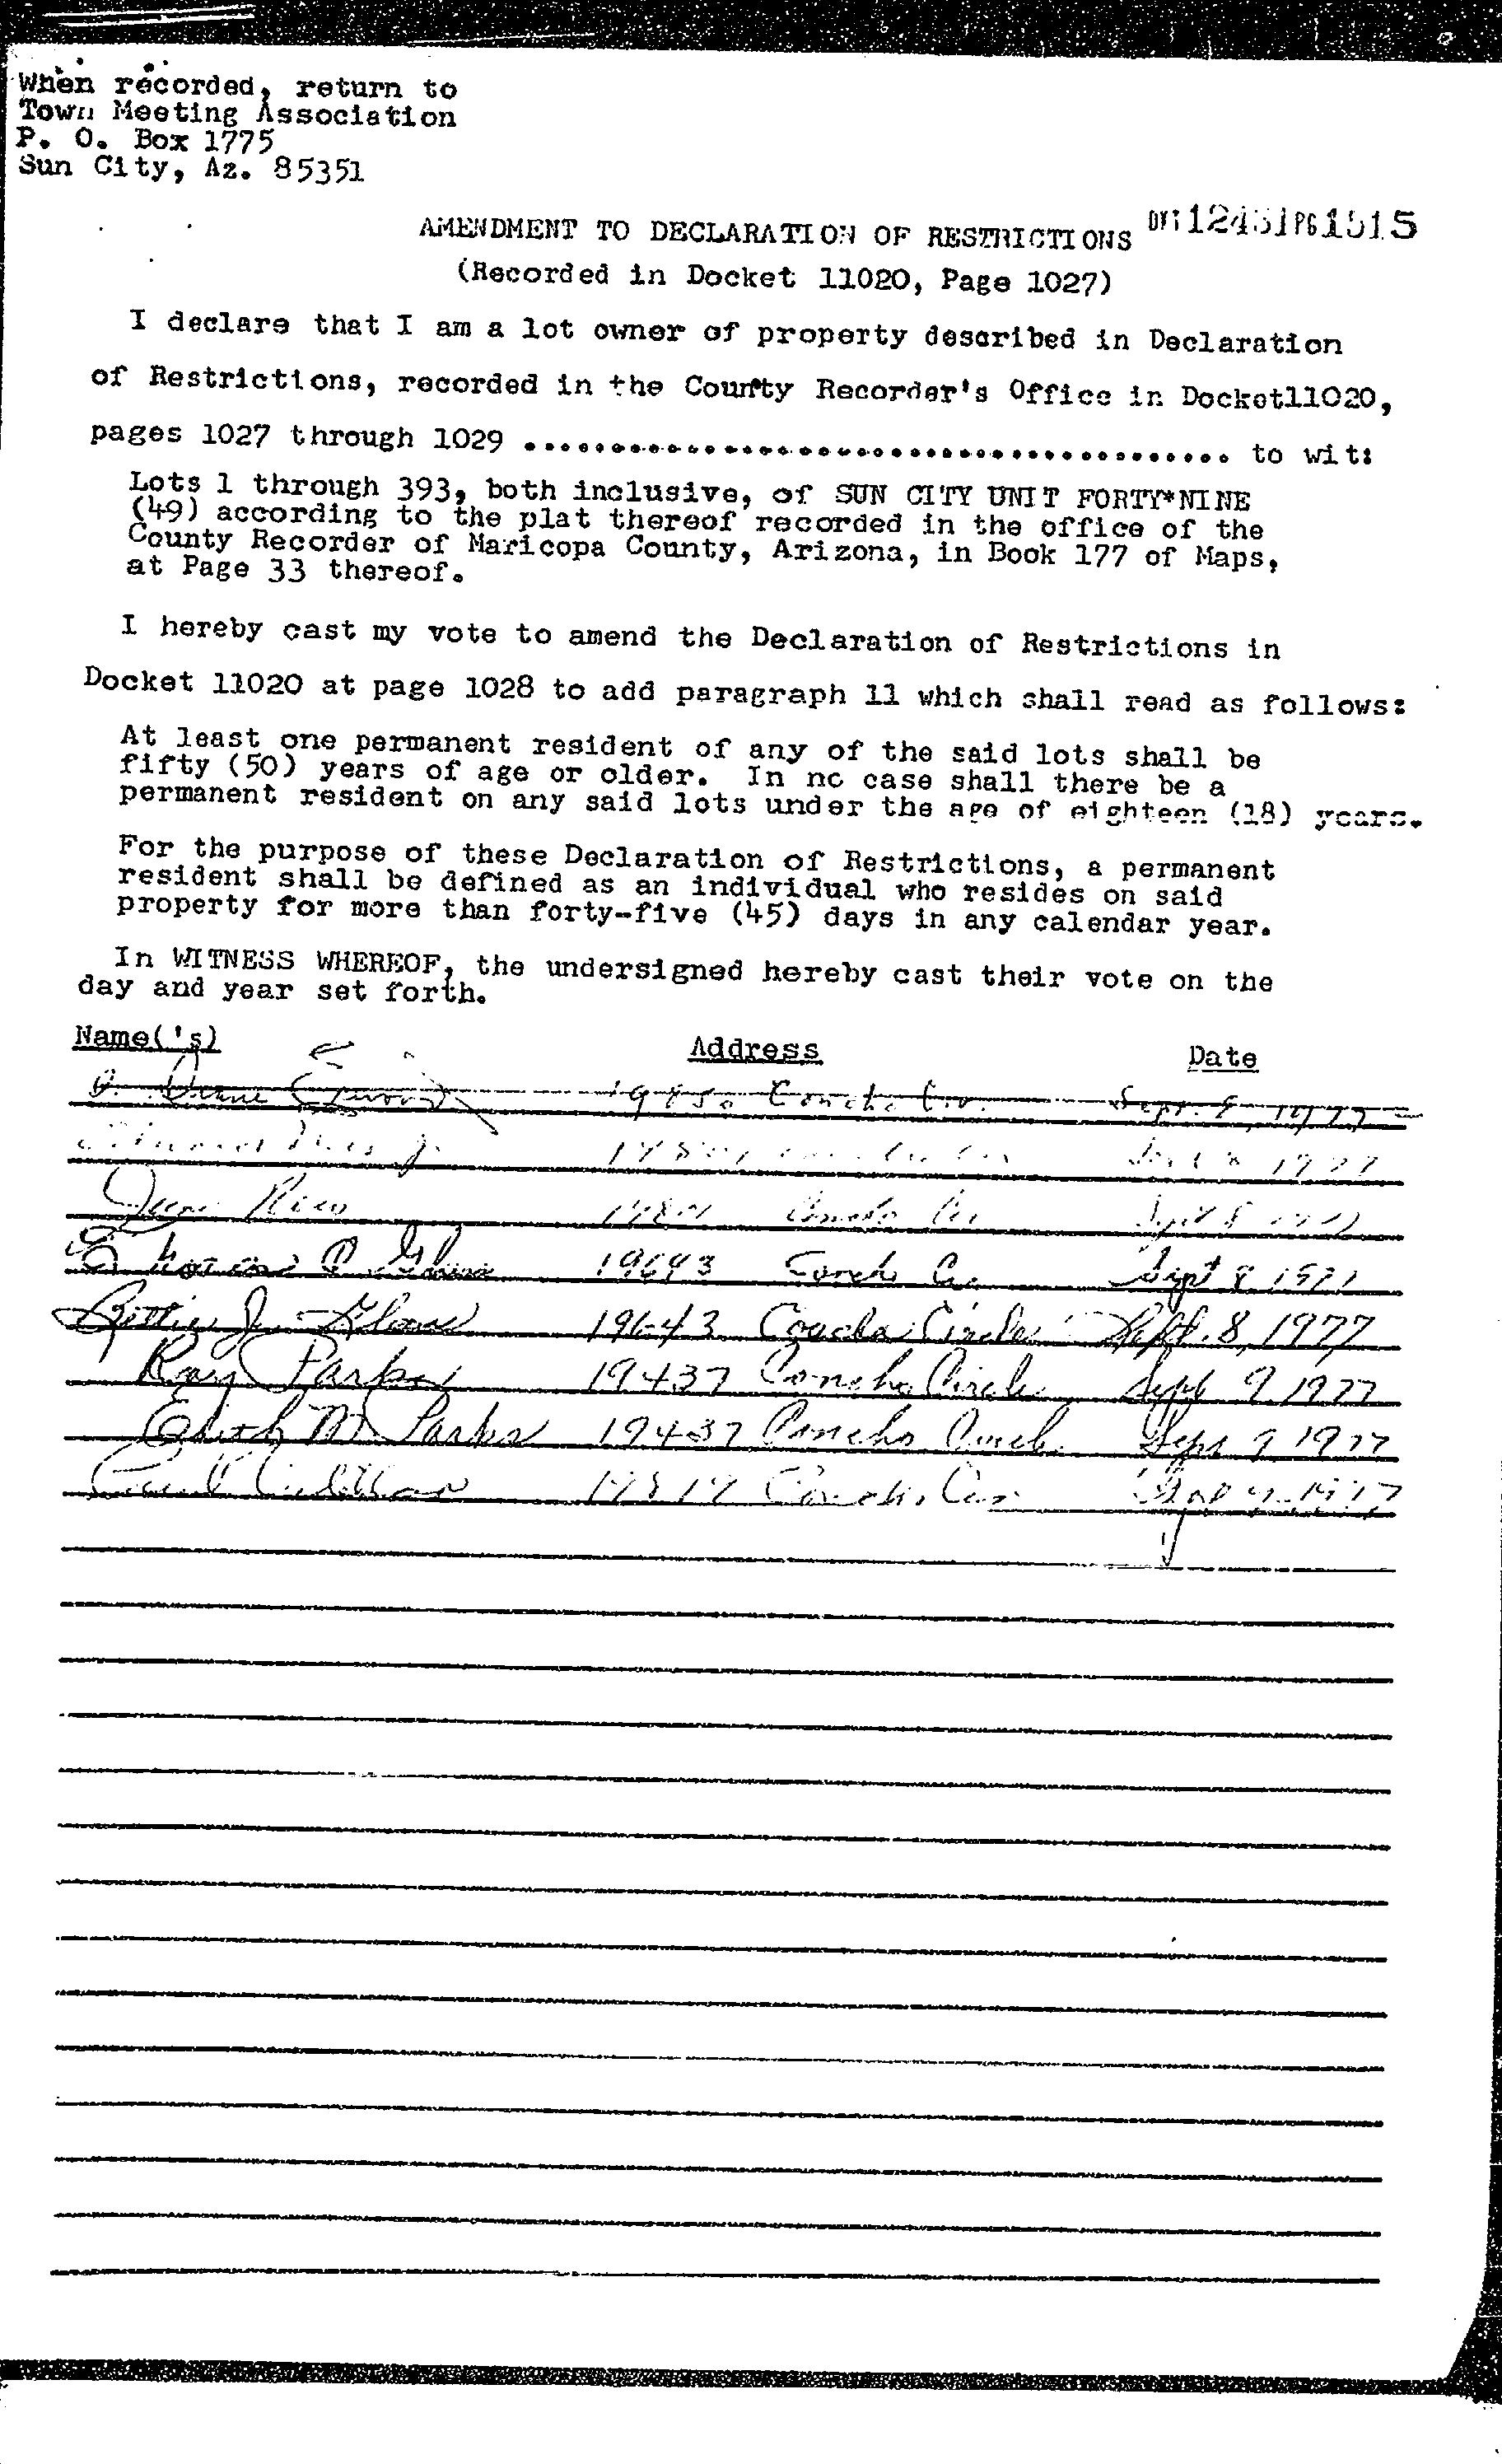 When recorded, return to
Town Meeting Association
P. O. Box 1775
Sun City, Az. 85351
AMENDMENT TO DECLARATION OF RESTRICTIONS
(Recorded in Docket 11020, Page 1027)
I declare that I am a lot owner of property described in Declaration
of Restrictions, recorded in the County Recorder's Office in Docket11020,
pages 1027 through 1029 ........................................ to wit:
Lots 1 through 393, both inclusive, of SUN CITY UNIT FORTY*NINE
(49) according to the plat thereof recorded in the office of the
County Recorder of Maricopa County, Arizona, in Book 177 of Maps,
at Page 33 thereof.
I hereby cast my vote to amend the Declaration of Restrictions in
Docket 11020 at page 1028 to add paragraph 11 which shall read as follows:
At least one permanent resident of any of the said lots shall be
fifty (50) years of age or older. In no case shall there be a
permanent resident on any said lots under the age of eighteen (18) years.
For the purpose of these Declaration of Restrictions, a permanent
resident shall be defined as an individual who resides on said
property for more than forty-five (45) days in any calendar year.
In WITNESS WHEREOF, the undersigned hereby cast their vote on the
day and year set forth.
Name('s) Address Date
Concho Cir. Sept. 8, 1977
1977
June Rico Concho Cir Sept 8
19643 Concho Cir Sept 8 1977
19643 Concho Circle Sept. 8, 1977
Ray Parks 19437 Concho Circle Sept 9 1977
Edith M Parks 19437 Concho Circle Sept 9 1977
Concho Cir 1977